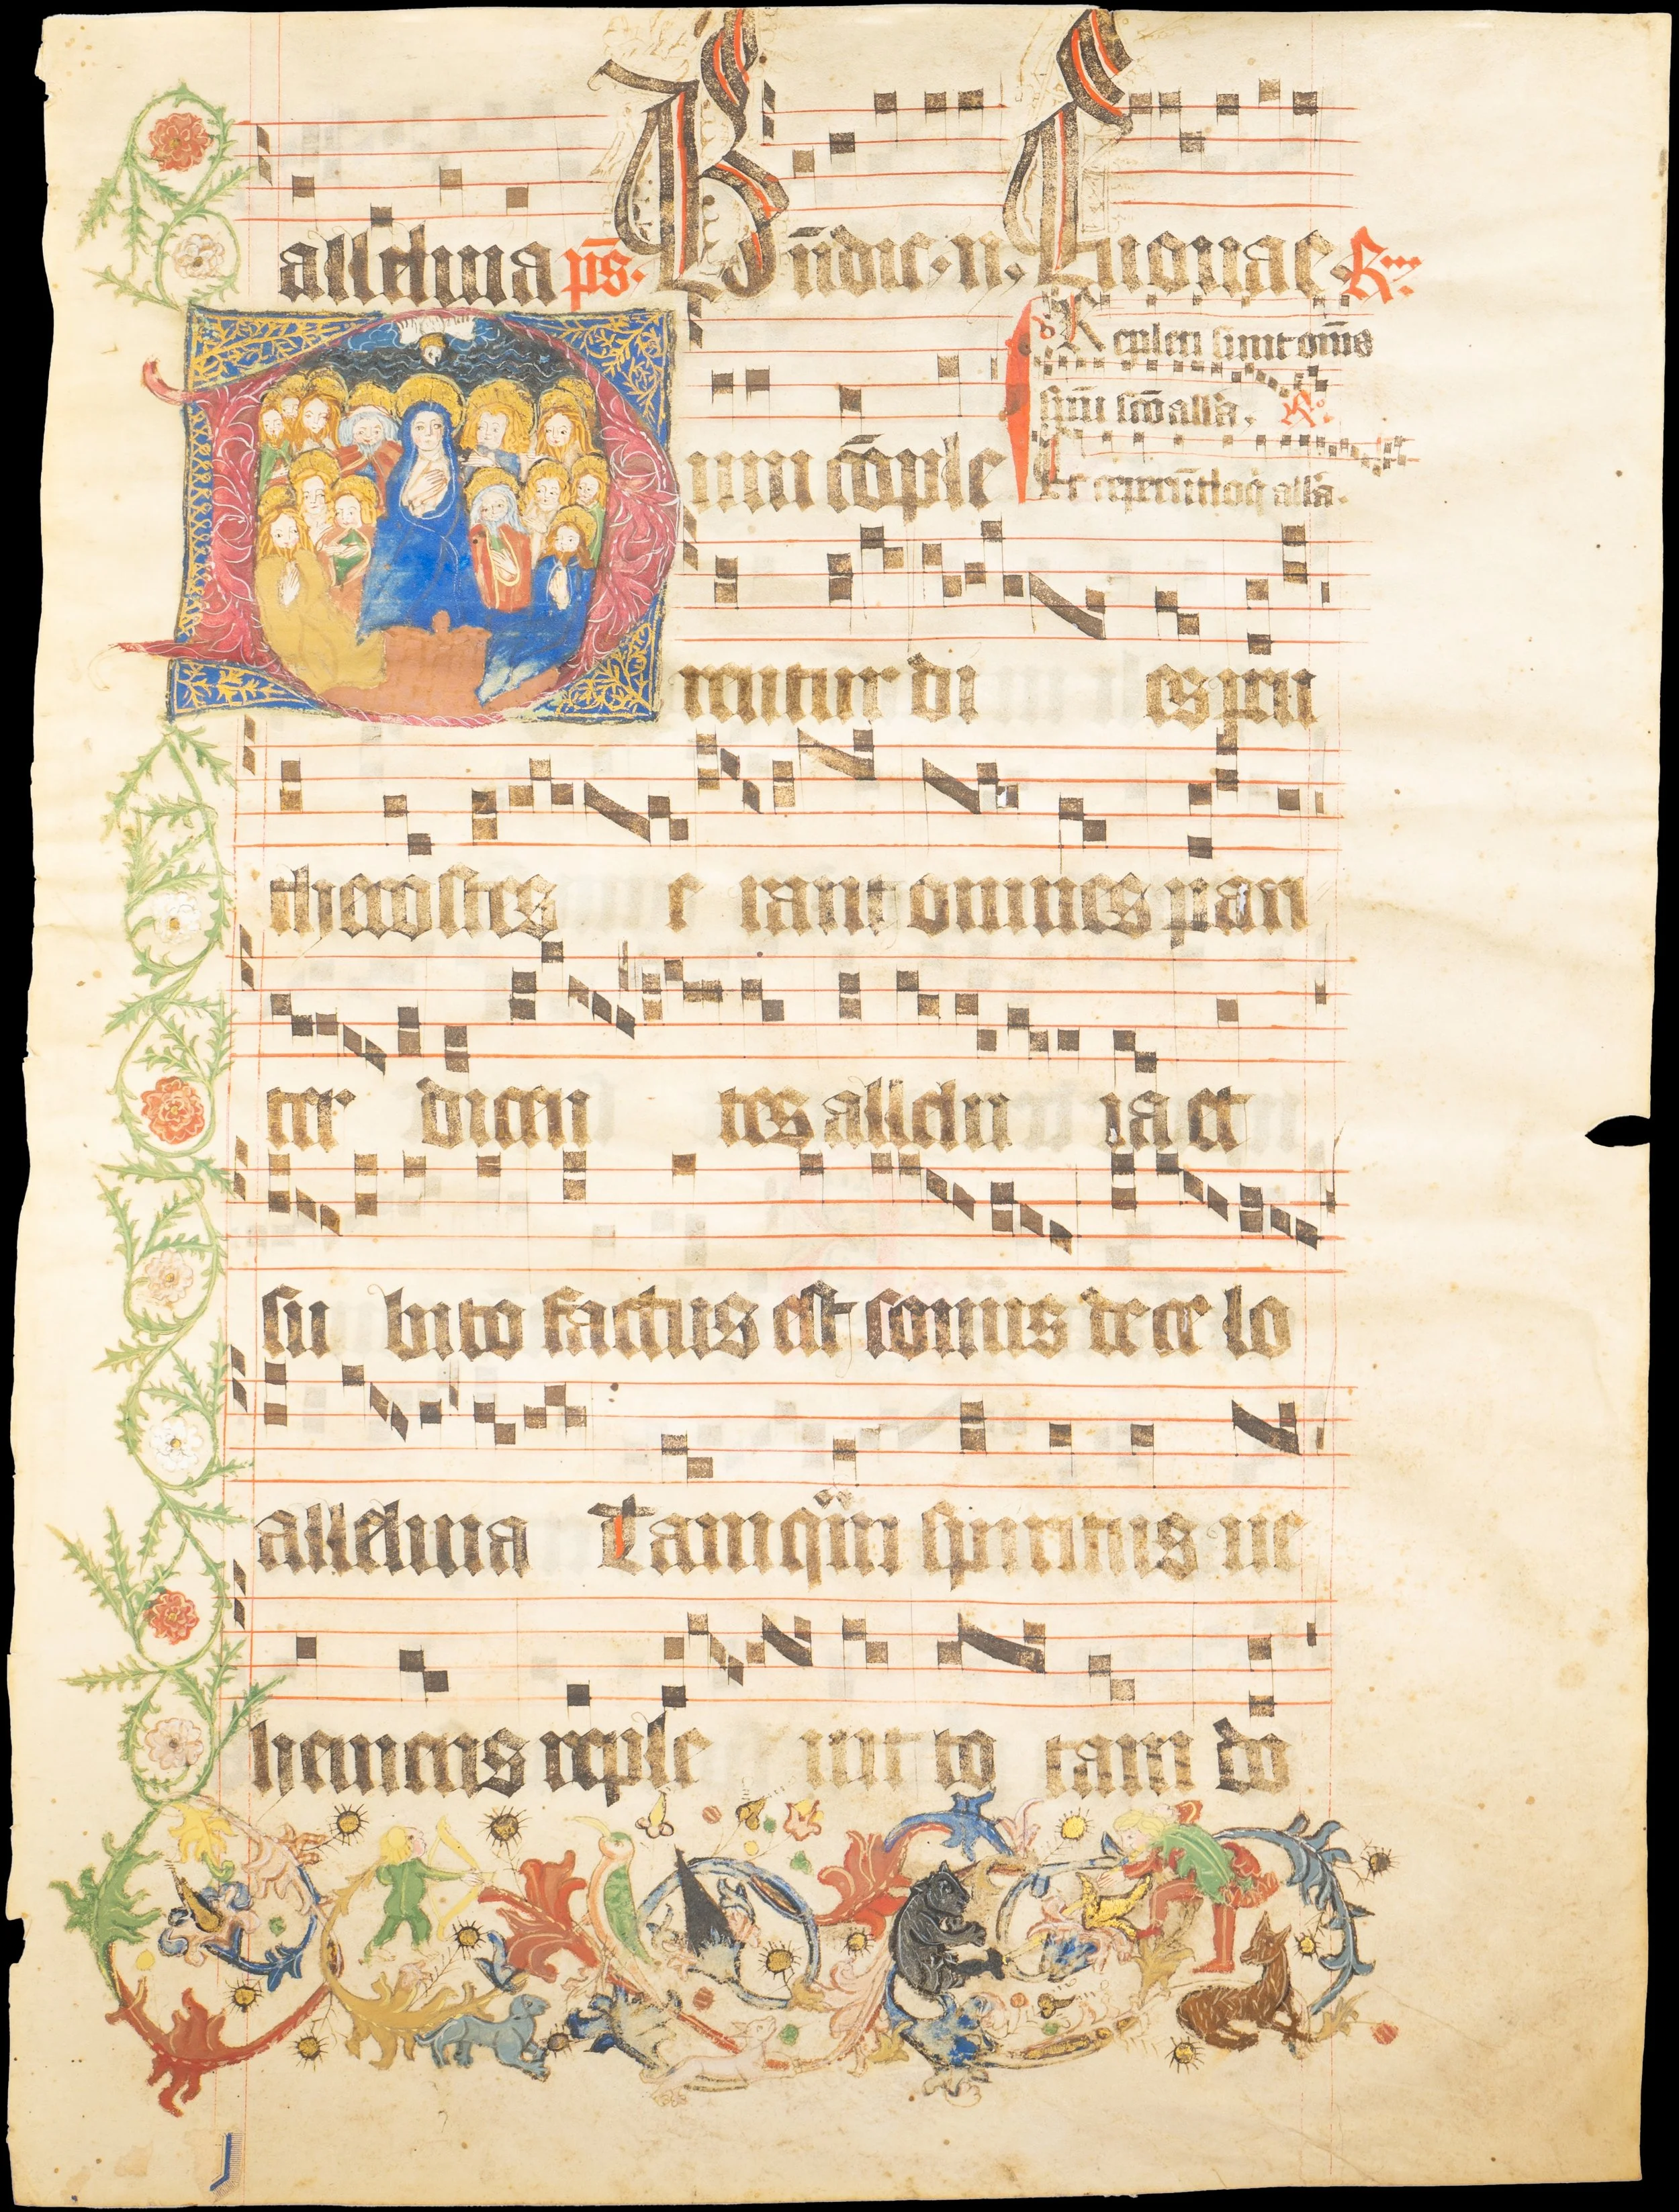 alleluia ps. Bn̄dic. n. Euouae R̄
Repleti sunt om̄s
spūu scō all'a. R̄.
Dum cōple
Et ceperūt loq̄ all'a.
rentur di es pen
thecostes e rant omnes pari
ter dicen tes allelu ia et
su bito factus est sonus de ce lo
alleluia Tamquā spiritus ue
hemens reple uit to tam do